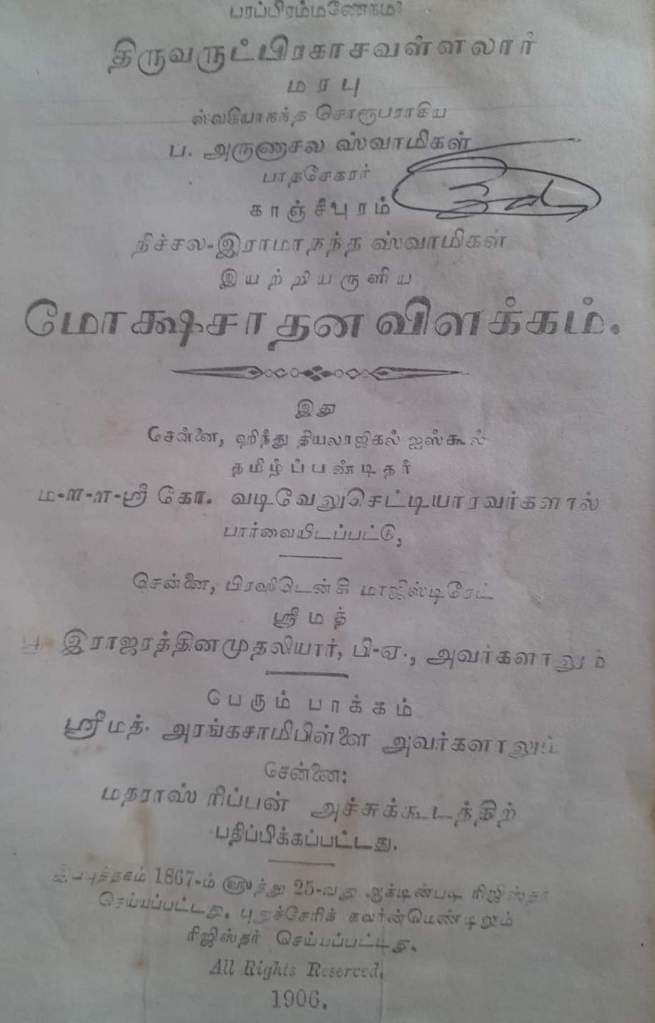 பரப்பிரம்மணேநம:
திருவருட்பிரகாசவள்ளலார்
மரபு
சொரூபராகிய
ப. அருணாசல ஸ்வாமிகள்
பாதசேகரர்
காஞ்சீபுரம்
நிச்சல-இராமாநந்த ஸ்வாமிகள்
இயற்றியருளிய
மோக்ஷசாதன விளக்கம்.
இது
சென்னை, ஹிந்து தியலாஜிகல் ஐஸ்கூல்
தமிழ்ப்பண்டிதர்
ம-ள-ள-ஸ்ரீ கோ. வடிவேலுசெட்டியாரவர்களால்
பார்வையிடப்பட்டு,
சென்னை, பிரஸிடென்சி மாஜிஸ்டிரேட்
ஸ்ரீமத்
இராஜரத்தினமுதலியார், பி-ஏ., அவர்களாலும்
பேரும் பாக்கம்
ஸ்ரீமத். அரங்கசாமிபிள்ளை அவர்களாலும்
சென்னை:
மதராஸ் ரிப்பன் அச்சுக்கூடத்திற்
பதிப்பிக்கப்பட்டது.
இப்புத்தகம் 1867-ம் ௵த்து 25-வது ஆக்டின்படி ரிஜிஸ்தர்
செய்யப்பட்டது. புதுச்சேரிக் கவர்ன்மெண்டிலும்
ரிஜிஸ்தர் செய்யப்பட்டது.
All Rights Reserved.
1906.